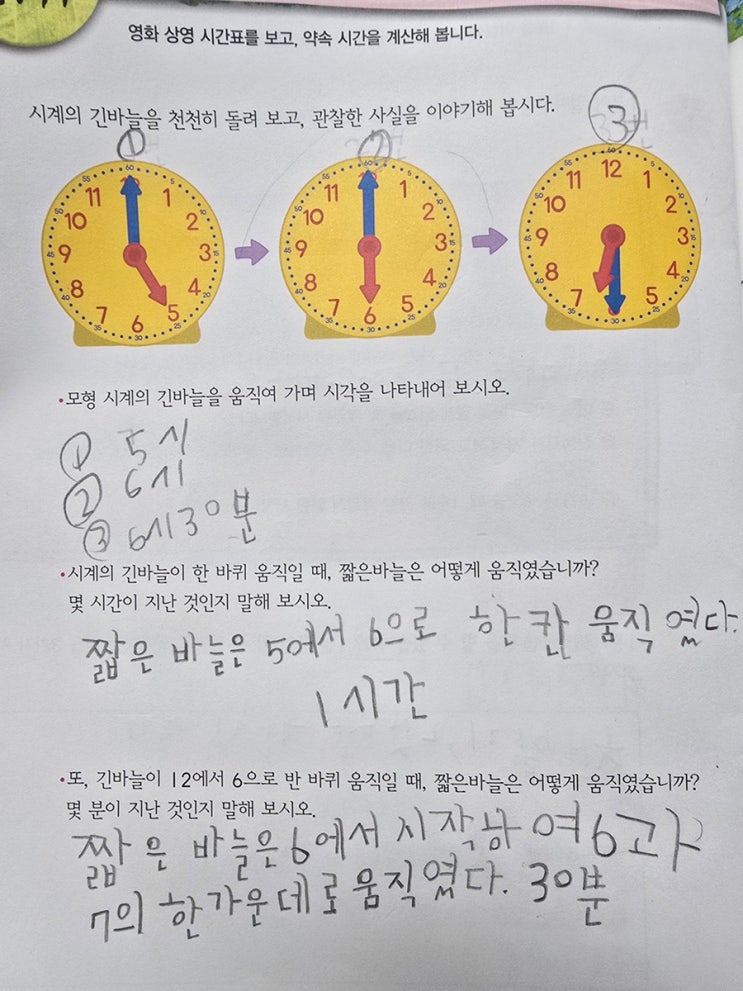 영화 상영 시간표를 보고, 약속 시간을 계산해 봅니다.
시계의 긴바늘을 천천히 돌려 보고, 관찰한 사실을 이야기해 봅시다.
① ② ③번
•모형 시계의 긴바늘을 움직여 가며 시각을 나타내어 보시오.
① 5시
② 6시
③ 6시30분
•시계의 긴바늘이 한 바퀴 움직일 때, 짧은바늘은 어떻게 움직였습니까?
몇 시간이 지난 것인지 말해 보시오.
짧은 바늘은 5에서 6으로 한 칸 움직 였다.
1시간
•또, 긴바늘이 12에서 6으로 반 바퀴 움직일 때, 짧은바늘은 어떻게 움직였습니까?
몇 분이 지난 것인지 말해 보시오.
짧은 바늘은 6에서 시작하 여 6과
7의 한가운데로 움직였다. 30분